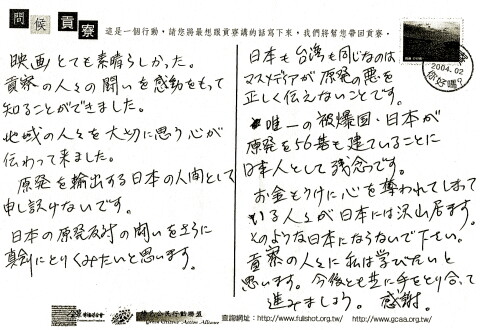 問候貢寮
這是一個行動，請您將最想跟貢寮講的話寫下來，我們將幫您帶回貢寮。
2004.02
你好嗎?
映画とても素晴らしかった。
貢寮の人々の闘いを感動をもって
知ることができました。
地域の人々を大切に思う心が
伝わって来ました。
原発を輸出する日本の人間として
申し訳けないです。
日本の原発反対の闘いをさらに
真剣にとりくみたいと思います。
日本も台湾も同じなのは
マスメディアが原発の悪を
正しく伝えないことです。
唯一の被爆国・日本が
原発を56基も建ていることに
日本人として残念です。
お金もうけに心を奪われてしまって
いる人々が日本には沢山居ます。
そのような日本にならないで下さい。
貢寮の人々に私は学びたいと
思います。今後とも共に手をとり合って
進みましょう。感謝。
公民行動聯盟
Citizens Action Alliance
查詢網址：http://www.fullshot.org.tw/ http://www.gcaa.org.tw/